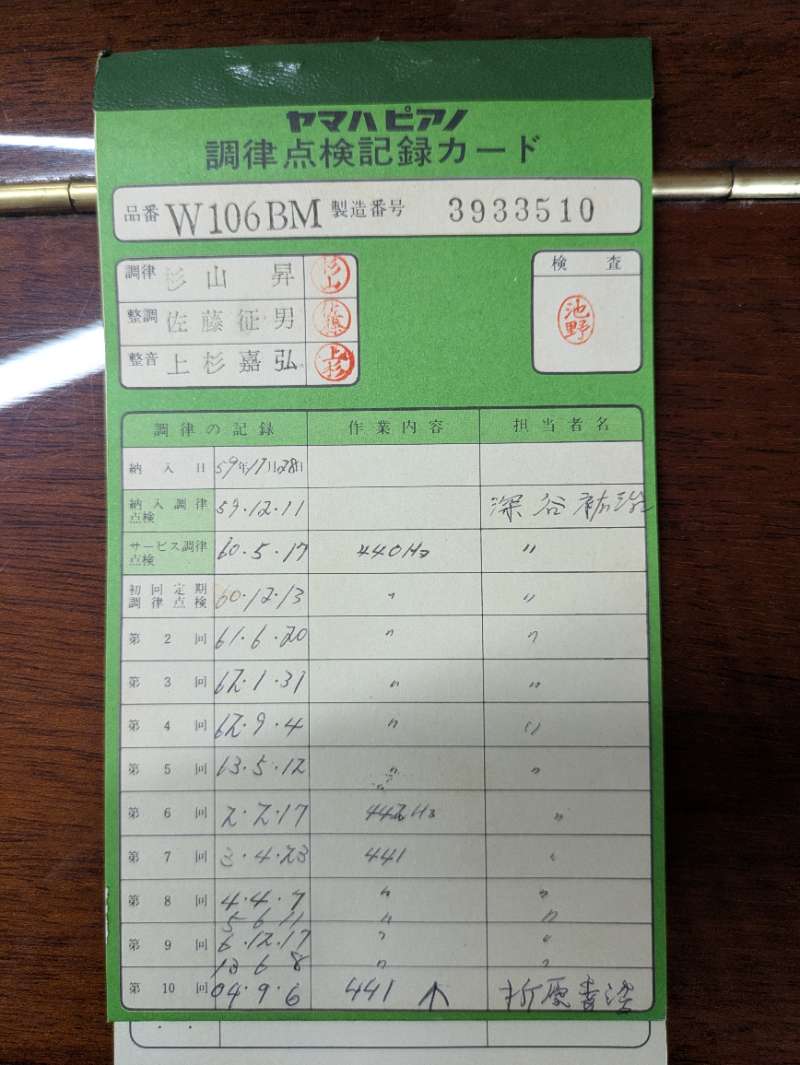 ヤマハピアノ
調律点検記録カード
品番 W106BM 製造番号 3933510
調律 杉山 昇 杉山
検査
整調 佐藤征男 佐藤
池野
整音 上杉嘉弘 上杉
調律の記録 作業内容 担当者名
納入日 59年11月28日
納入調律点検 59.12.11 深谷祐治
サービス調律点検 60.5.17 440Hz 〃
初回定期調律点検 60.12.13 〃 〃
第2回 61.6.20 〃 〃
第3回 62.1.31 〃 〃
第4回 62.9.4 〃 〃
第5回 63.5.12 〃 〃
第6回 2.2.17 442Hz 〃
第7回 3.4.23 441 〃
第8回 4.4.7 〃 〃
5 6 11 〃 〃
第9回 6.12.17 〃 〃
13 6 8 〃 〃
第10回 04.9.6 441 ↑ 折原